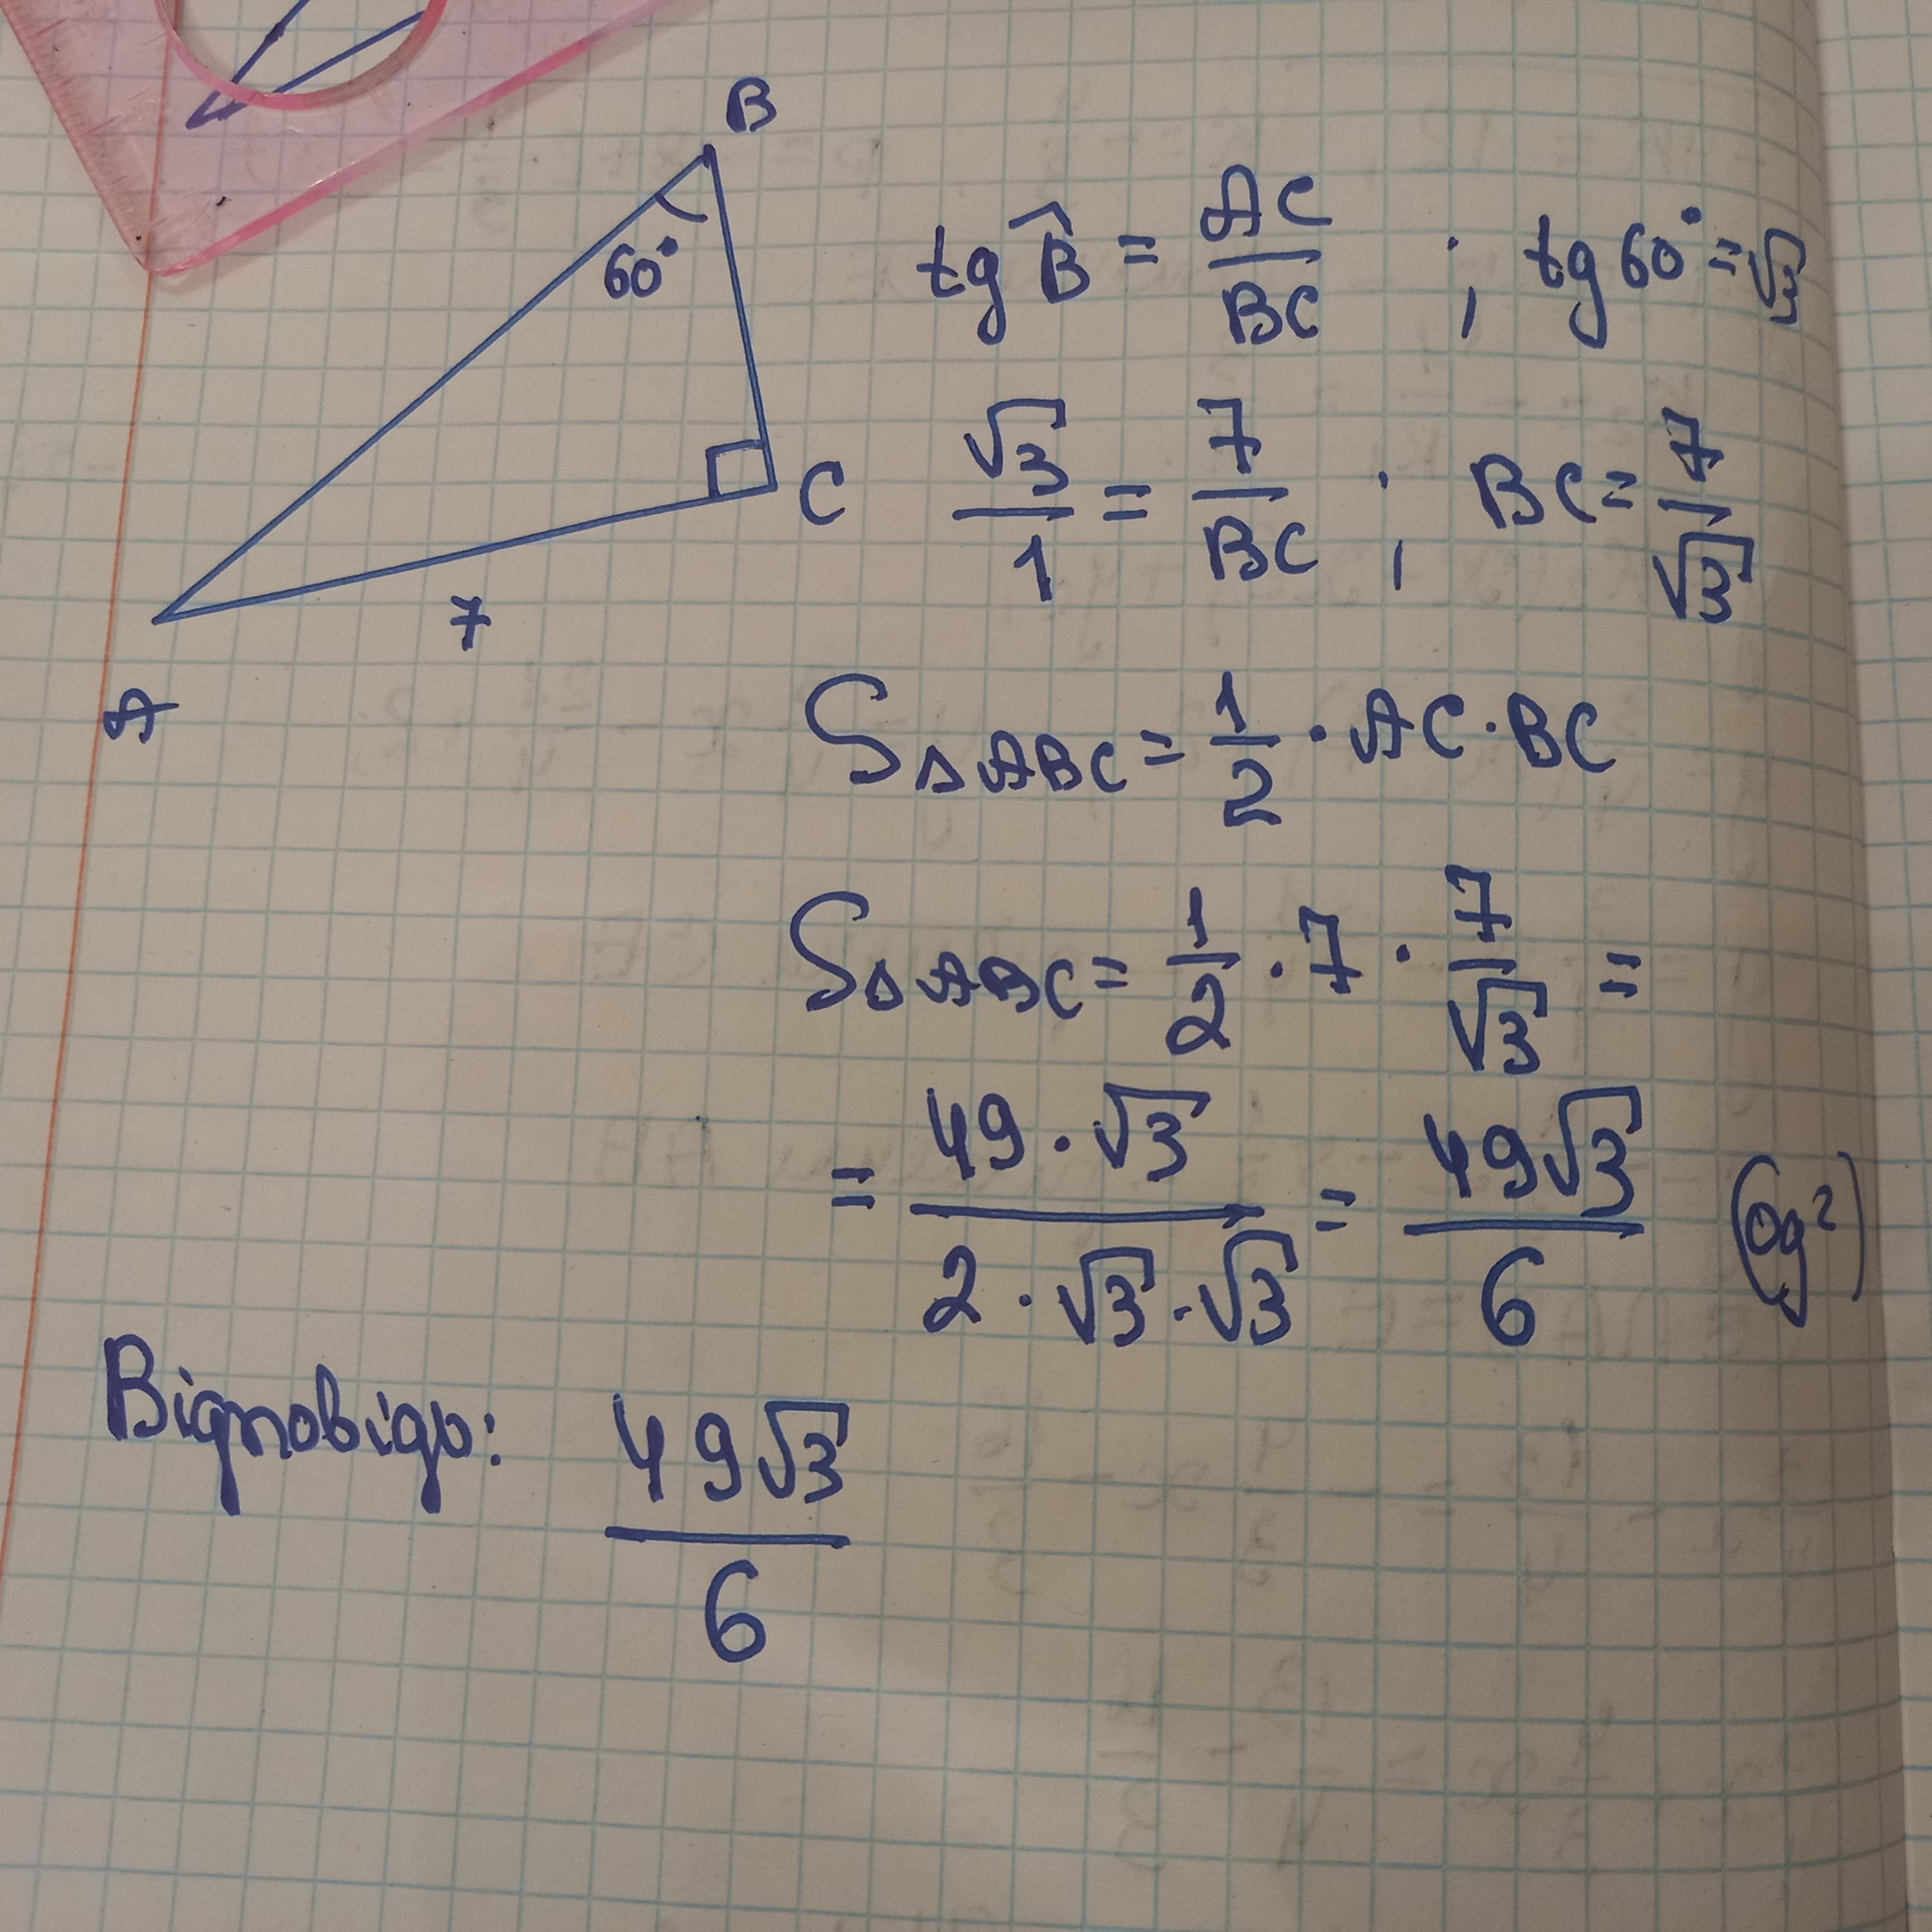 B
60°
C
7
A
tg B̂ = AC/BC ; tg 60° = √3
√3/1 = 7/BC ; BC = 7/√3
S△ABC = 1/2 · AC · BC
S△ABC = 1/2 · 7 · 7/√3 =
= 49 · √3 / 2 · √3 · √3 = 49√3/6 (од²)
Відповідь: 49√3/6